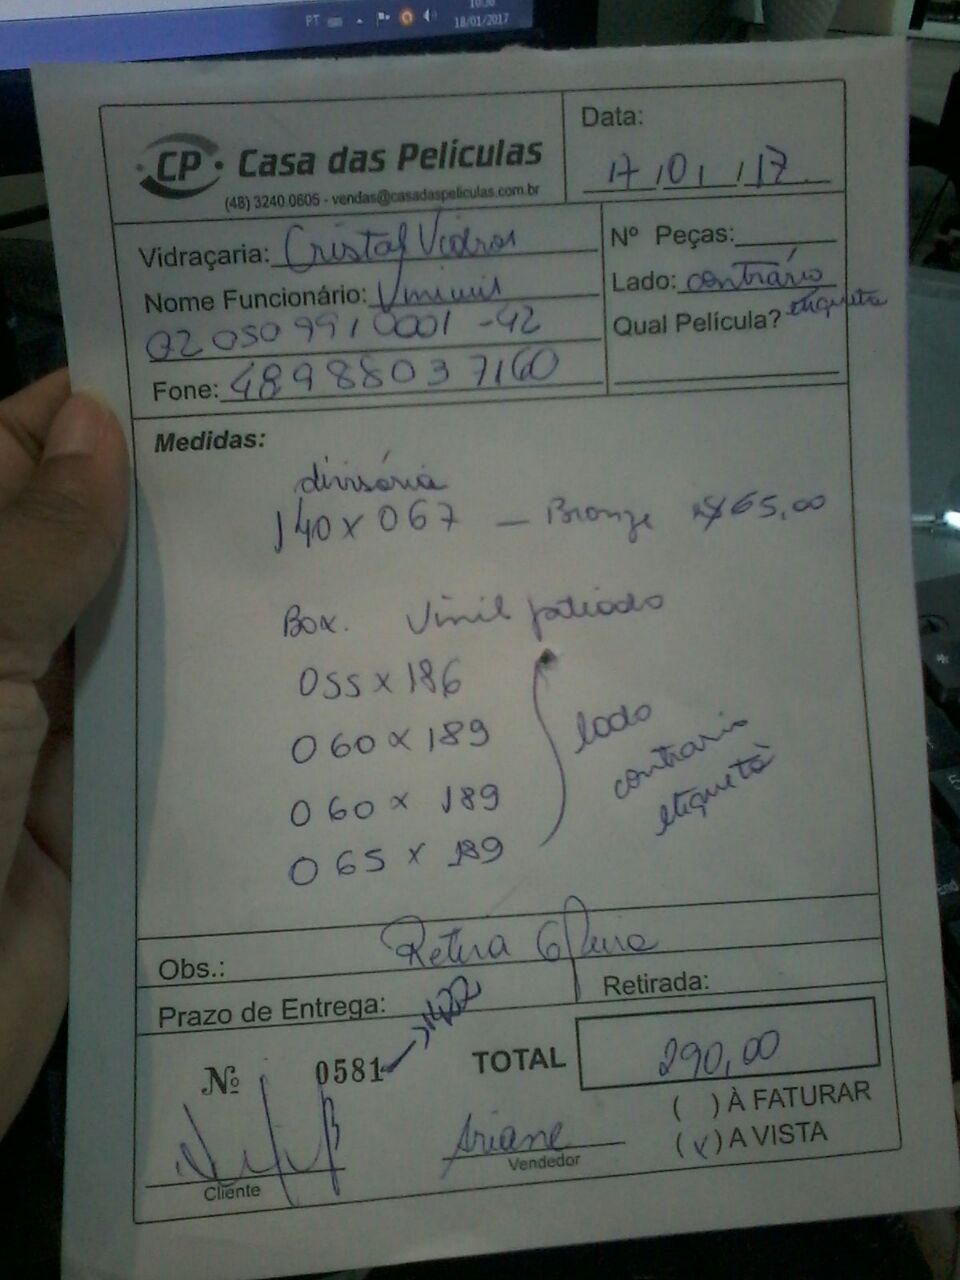 PT
10:36
18/01/2017
CP Casa das Películas
(48) 3240 0605 - vendas@casadaspeliculas.com.br
Data:
17/01/17
Vidraçaria: Cristal Vidros
Nome Funcionário:
02 050 991 0001 -42
Fone: 48988037160
Nº Peças:
Lado: contrário
etiqueta
Qual Película?
Medidas:
divisória
140 x 067 — Bronze R$65,00
Box. Vinil jateado
055 x 186
060 x 189
060 x 189
065 x 189
lado
contrario
etiqueta
Obs.: Retira
Prazo de Entrega:
Retirada:
Nº 0581
TOTAL 290,00
( ) À FATURAR
(v) A VISTA
Cliente
Ariane
Vendedor